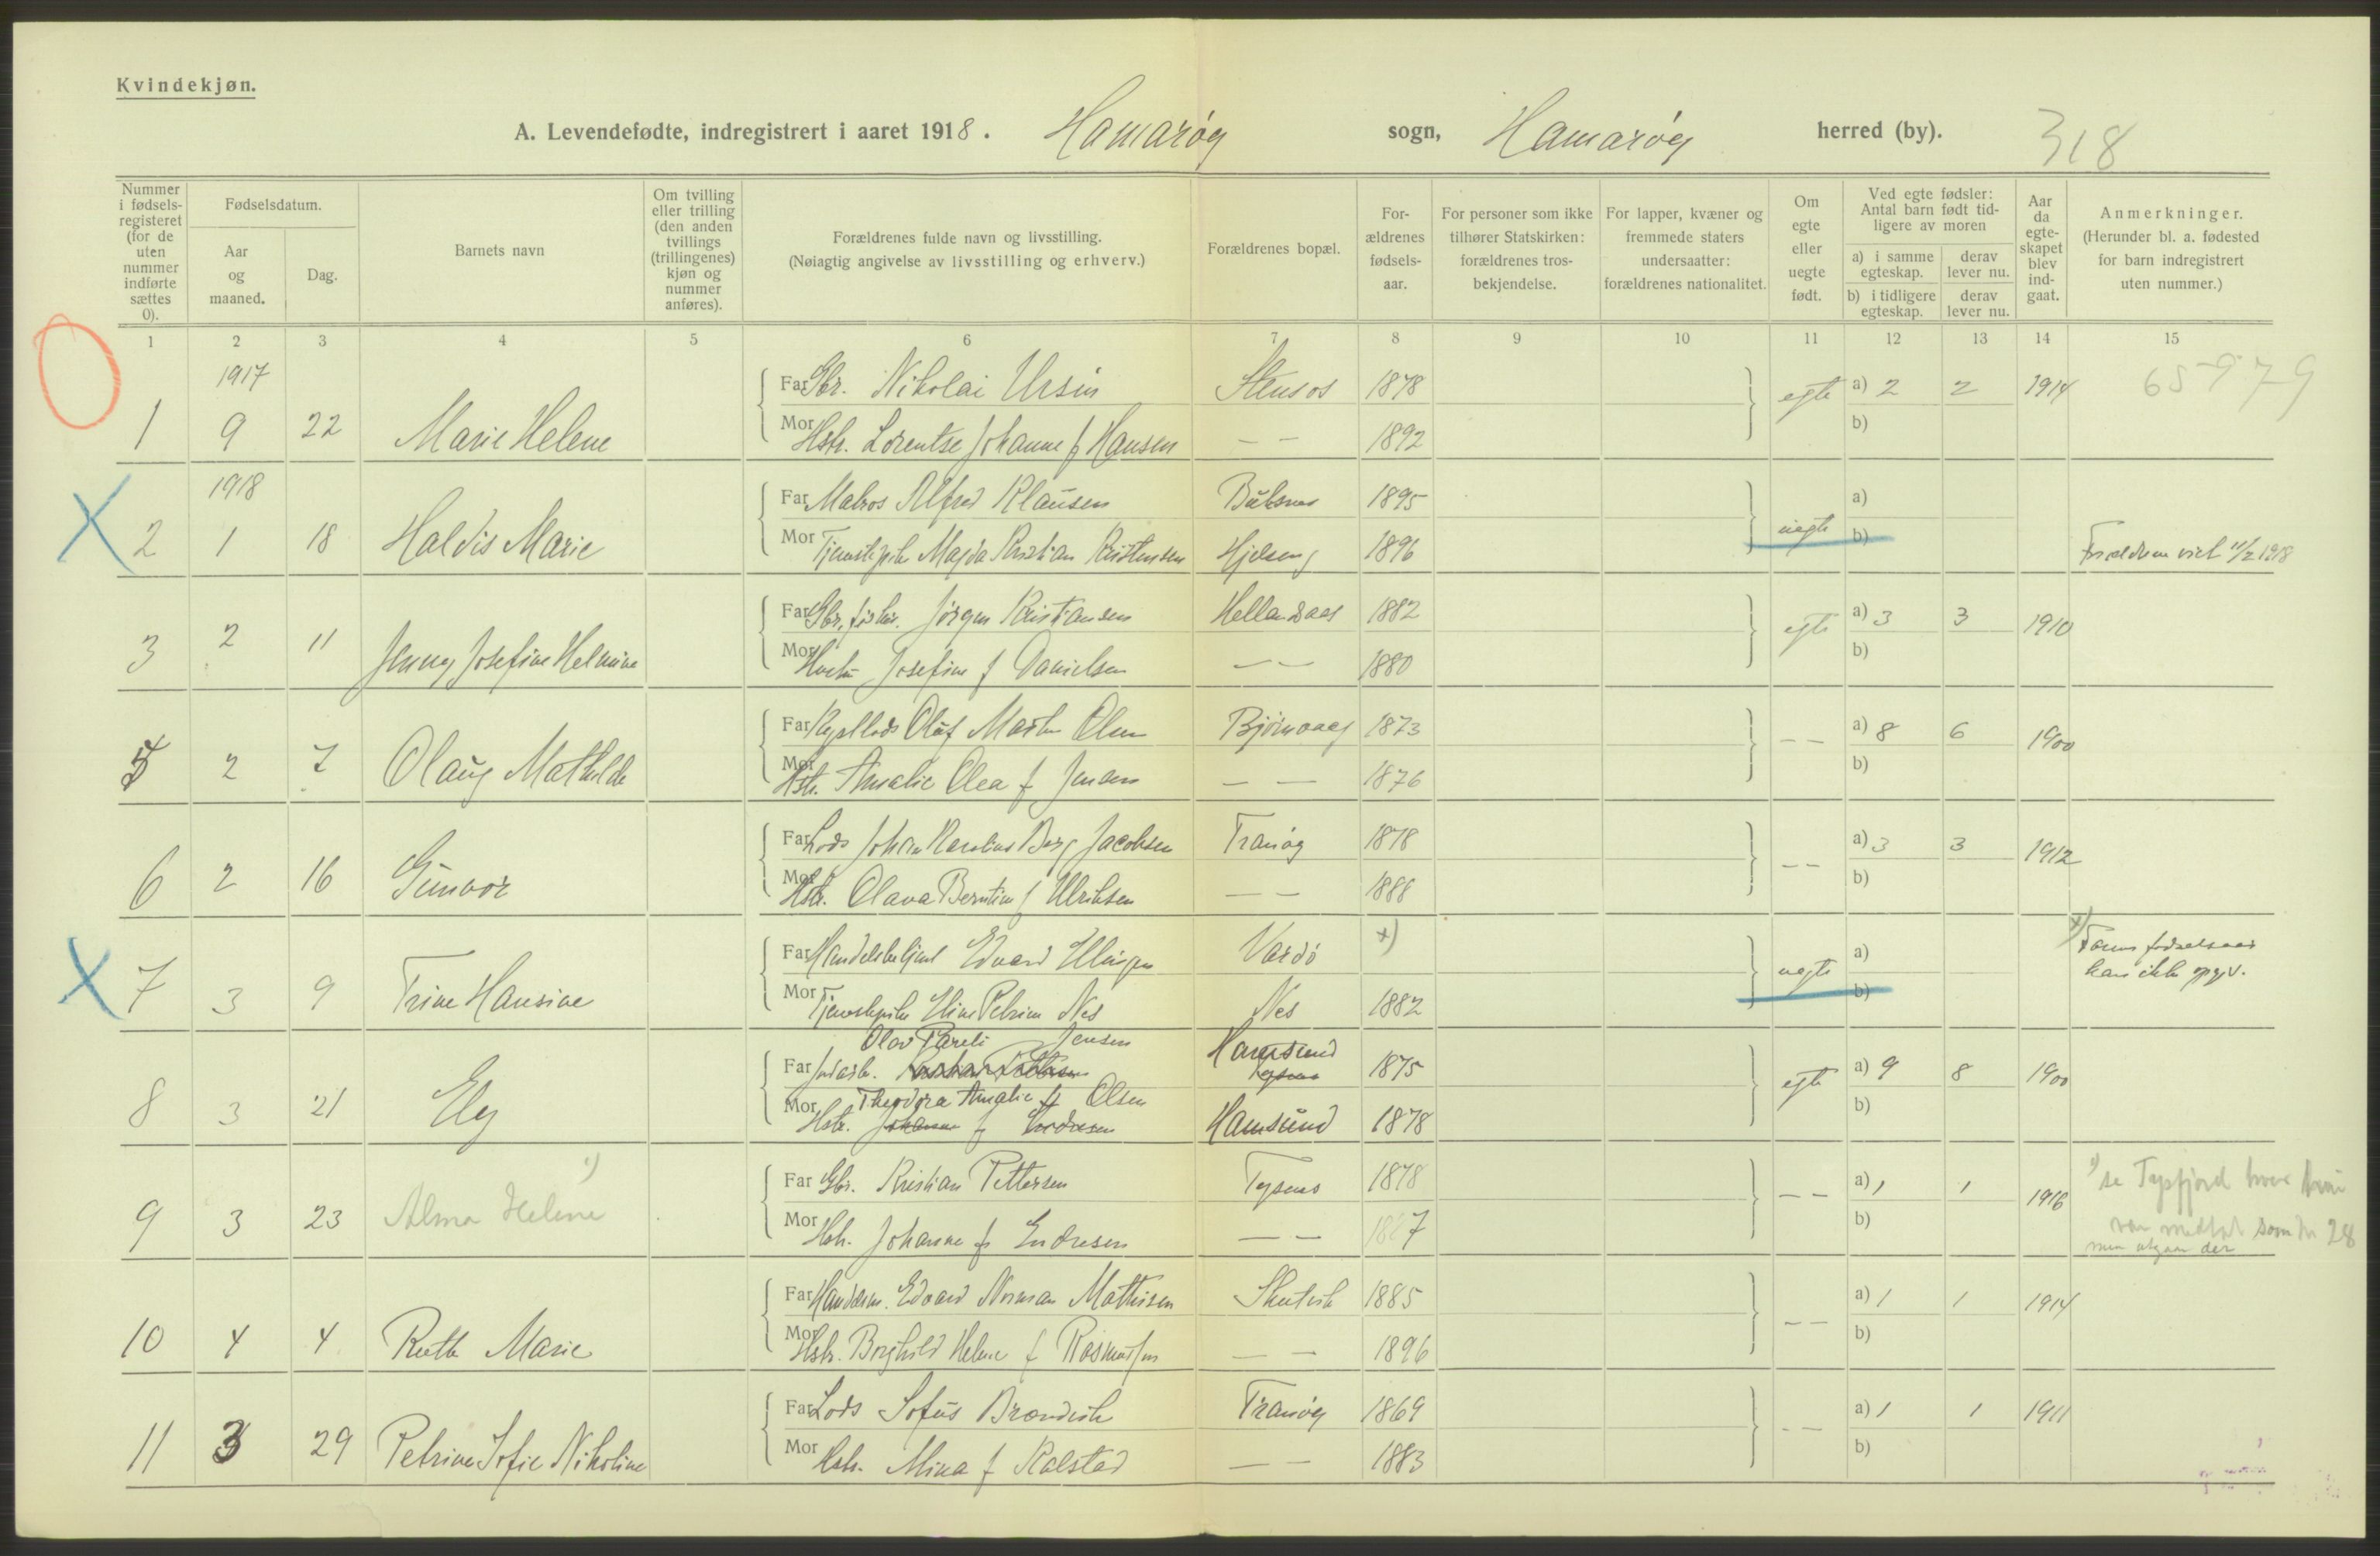 Kvindekjøn.
A. Levendefødte, indregistrert i aaret 1918. Hamarøy sogn, Hamarøy herred (by). 318
Nummer i fødsels-registeret (for de uten nummer indførte sættes 0).
Fødselsdatum.
Aar og maaned.
Dag.
Barnets navn
Om tvilling eller trilling (den anden tvillings (trillingenes) kjøn og nummer anføres).
Forældrenes fulde navn og livsstilling.
(Nøiagtig angivelse av livsstilling og erhverv.)
Forældrenes bopæl.
For-ældrenes fødsels-aar.
For personer som ikke tilhører Statskirken: forældrenes tros-bekjendelse.
For lapper, kvæner og fremmede staters undersaatter: forældrenes nationalitet.
Om egte eller uegte født.
Ved egte fødsler: Antal barn født tid-ligere av moren
a) i samme egteskap. derav lever nu.
b) i tidligere egteskap. derav lever nu.
Aar da egte-skapet blev ind-gaat.
Anmerkninger.
(Herunder bl. a. fødested for barn indregistrert uten nummer.)
1 2 3 4 5 6 7 8 9 10 11 12 13 14 15
1917
Far Gbr. Nikolai Ursin Stensos 1878 egte a) 2 2 1914 65979
1 9 22 Marie Helene
Mor Hstr. Lorentse Johanne f Hansen — — 1892 b)
1918
Far Matros Alfred Klausen 1895 uegte a)
2 1 18 Haldis Marie
Mor Tjenestepike Magda Kristian Kristensen 1896 b) Forældrene viet 11/2 1918
Far Gbr. fisker. Jørgen Kristiansen Hellandsaas 1882 egte a) 3 3 1910
3 2 11 Jenny Josefine Helmine
Mor Josefine f Danielsen — — 1880 b)
Far Oluf Martin Olsen 1873 — — a) 8 6 1900
5 2 7 Olaug Mathilde
Mor Hstr. Amalie Olea f Jensen — — 1876 b)
Far Lods Johan Berg Jacobsen Tranøy 1878 — — a) 3 3 1912
6 2 16 Gunvor
Mor Hstr. Olava Berntine f Ulriksen — — 1888 b)
Far Handelsbetjent Edvard Ellingsen Vardø x) uegte a) x) Farens fødselsaar kan ikke opgiv.
7 3 9 Trine Hansine
Mor Tjenestepike Eline Petrine Nes Nes 1882 b)
Olav Pareli Jensen Hamsund
Far Jordarb. Kristian Pettersen Tysnes 1875 egte a) 9 8 1900
8 3 21 Ely
Mor Theodora Amalie f Olsen
Hstr. Johanne f Endresen Hamsund 1878 b)
Far Gbr. Kristian Pettersen Tysnes 1878 — — a) 1 1 1916 1) se Tysfjord hvor hun
9 3 23 Alma Helene 1)
var medtat som nr 28
Mor Hstr. Johanne f Endresen — — b) men utgaar der
Far Handelsm. Edvard Norman Mathisen Skutvik 1885 — — a) 1 1 1914
10 4 4 Ruth Marie
Mor Hstr. Borghild Helene f Rasmussen — — 1896 b)
Far Lods Sofus Brændvik Tranøy 1869 — — a) 1 1 1911
11 3 29 Petrine Sofie Nikoline
Mor Hstr. Mina f Kalstad — — 1883 b)